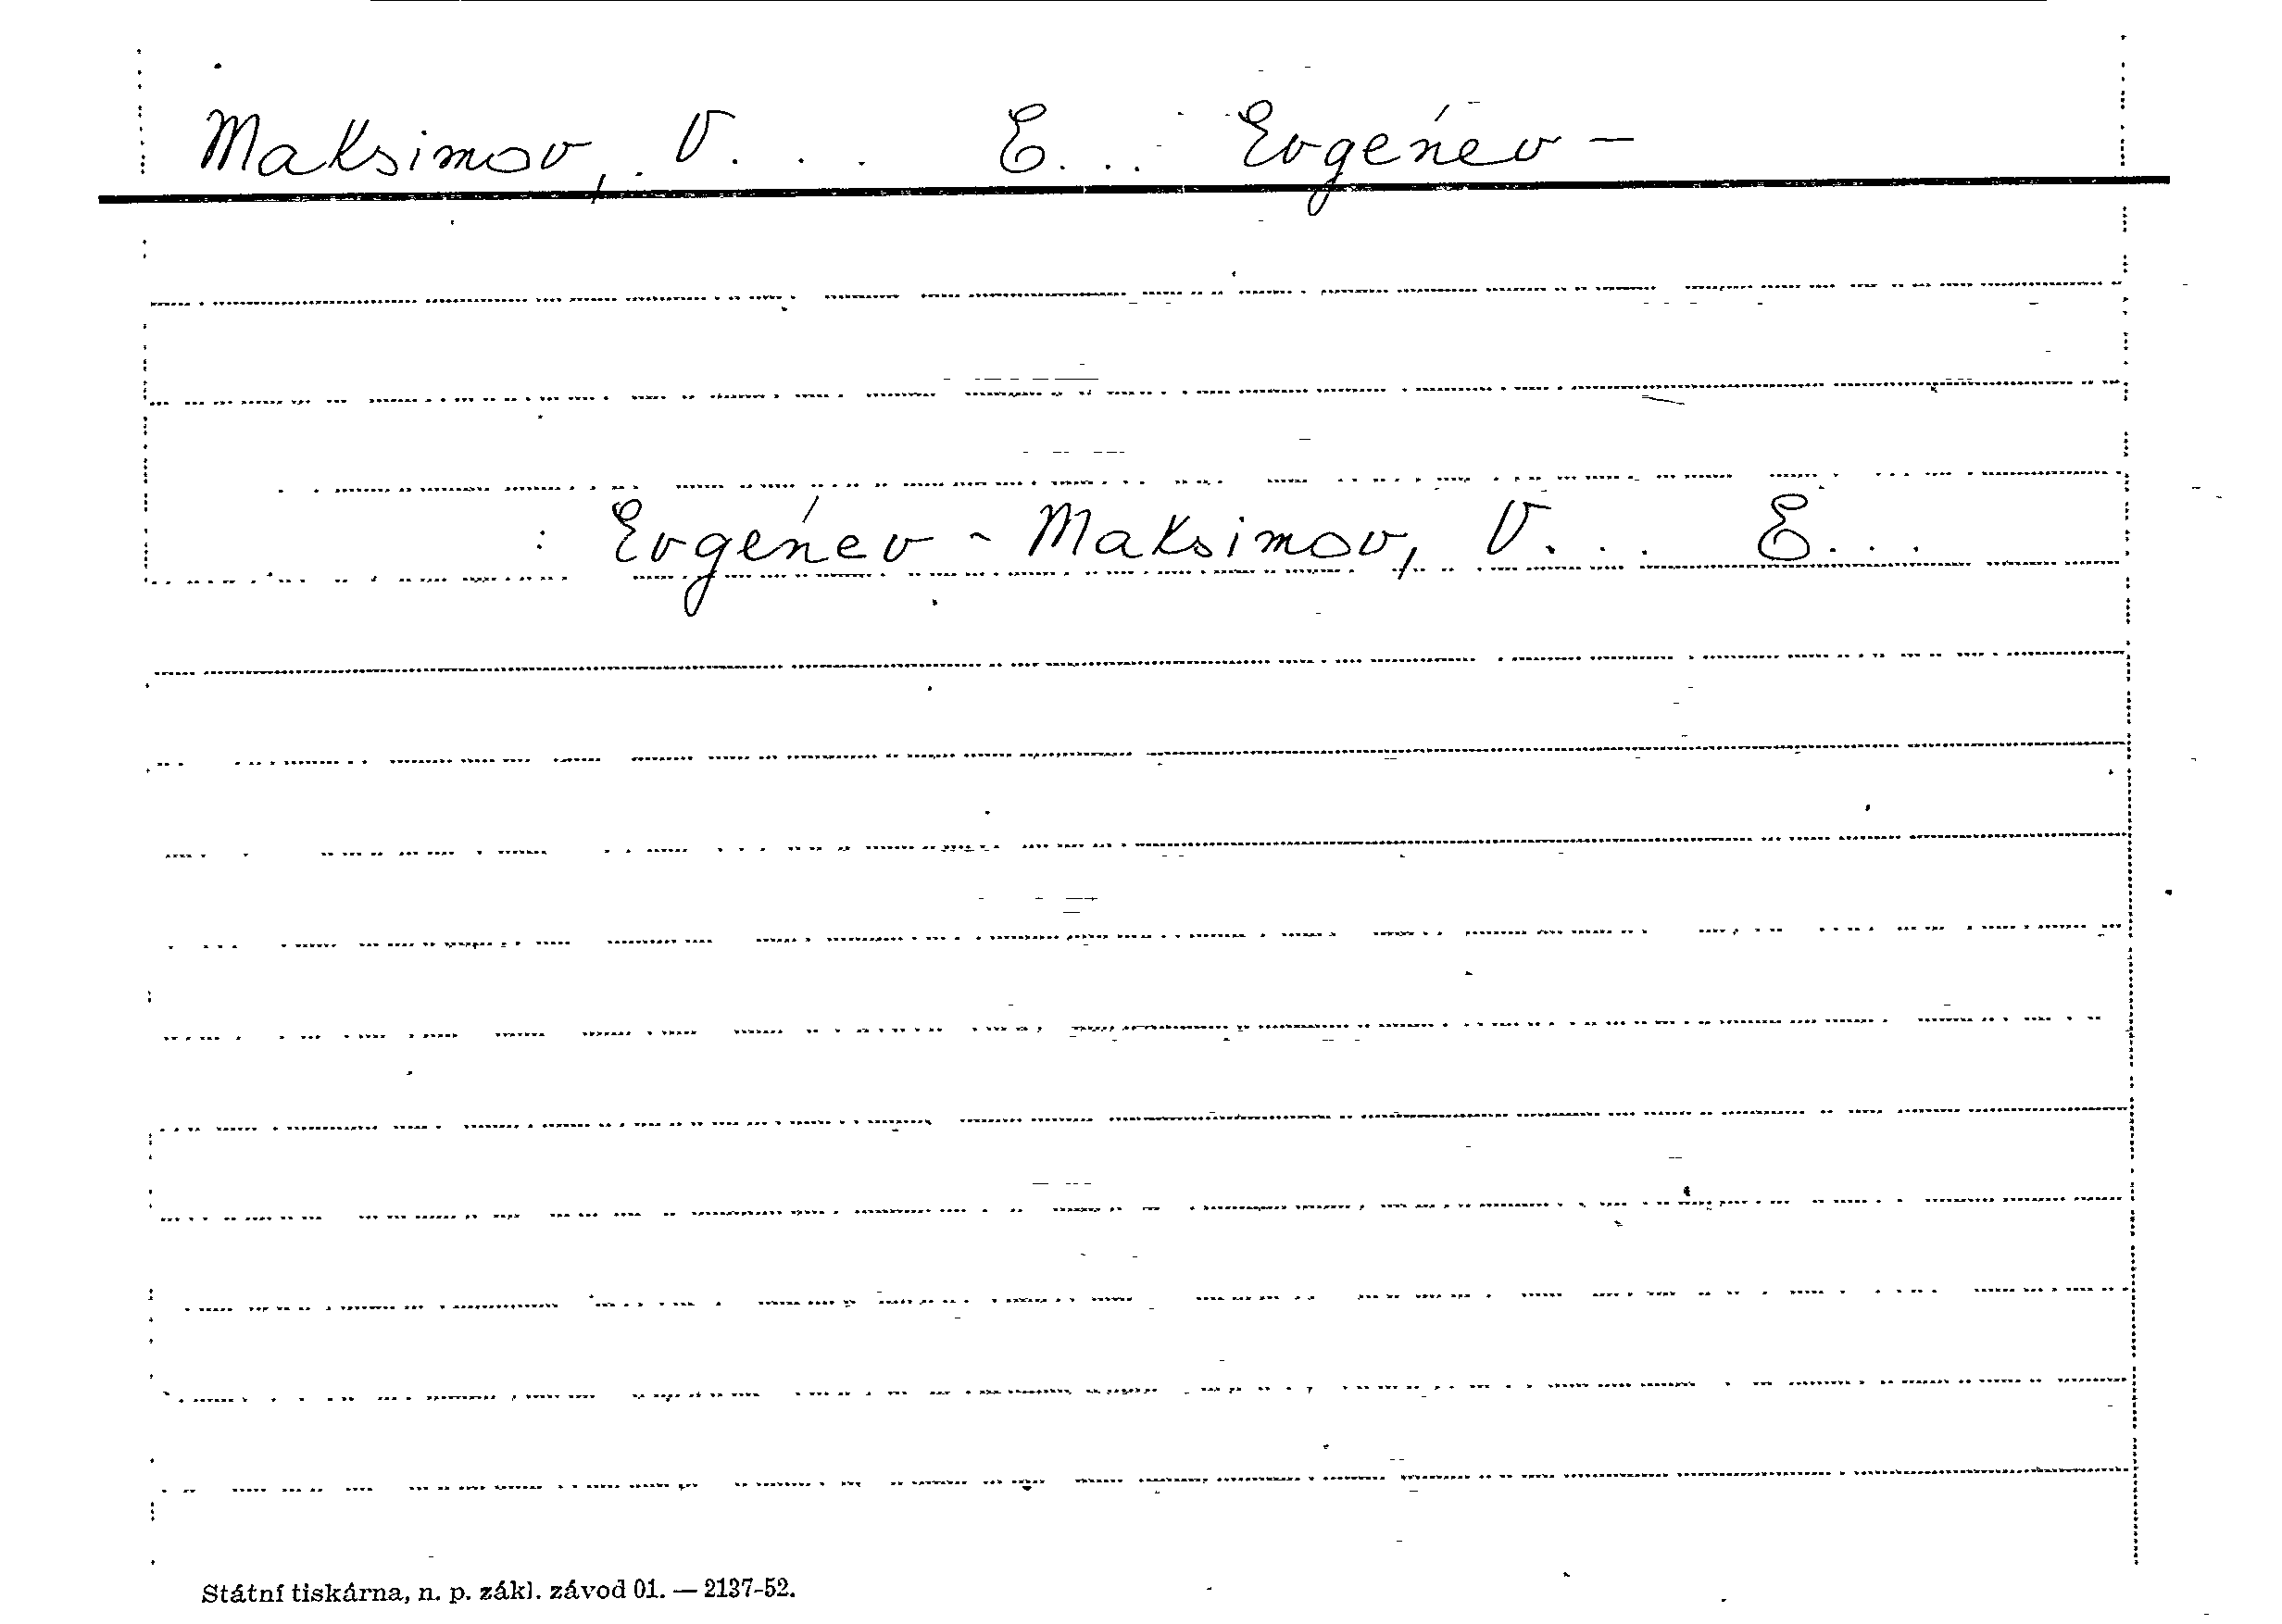 Maksimov, V... E... Evgeńev-
: Evgeńev-Maksimov, V... E...
Státní tiskárna, n. p. zákl. závod 01. — 2137-52.